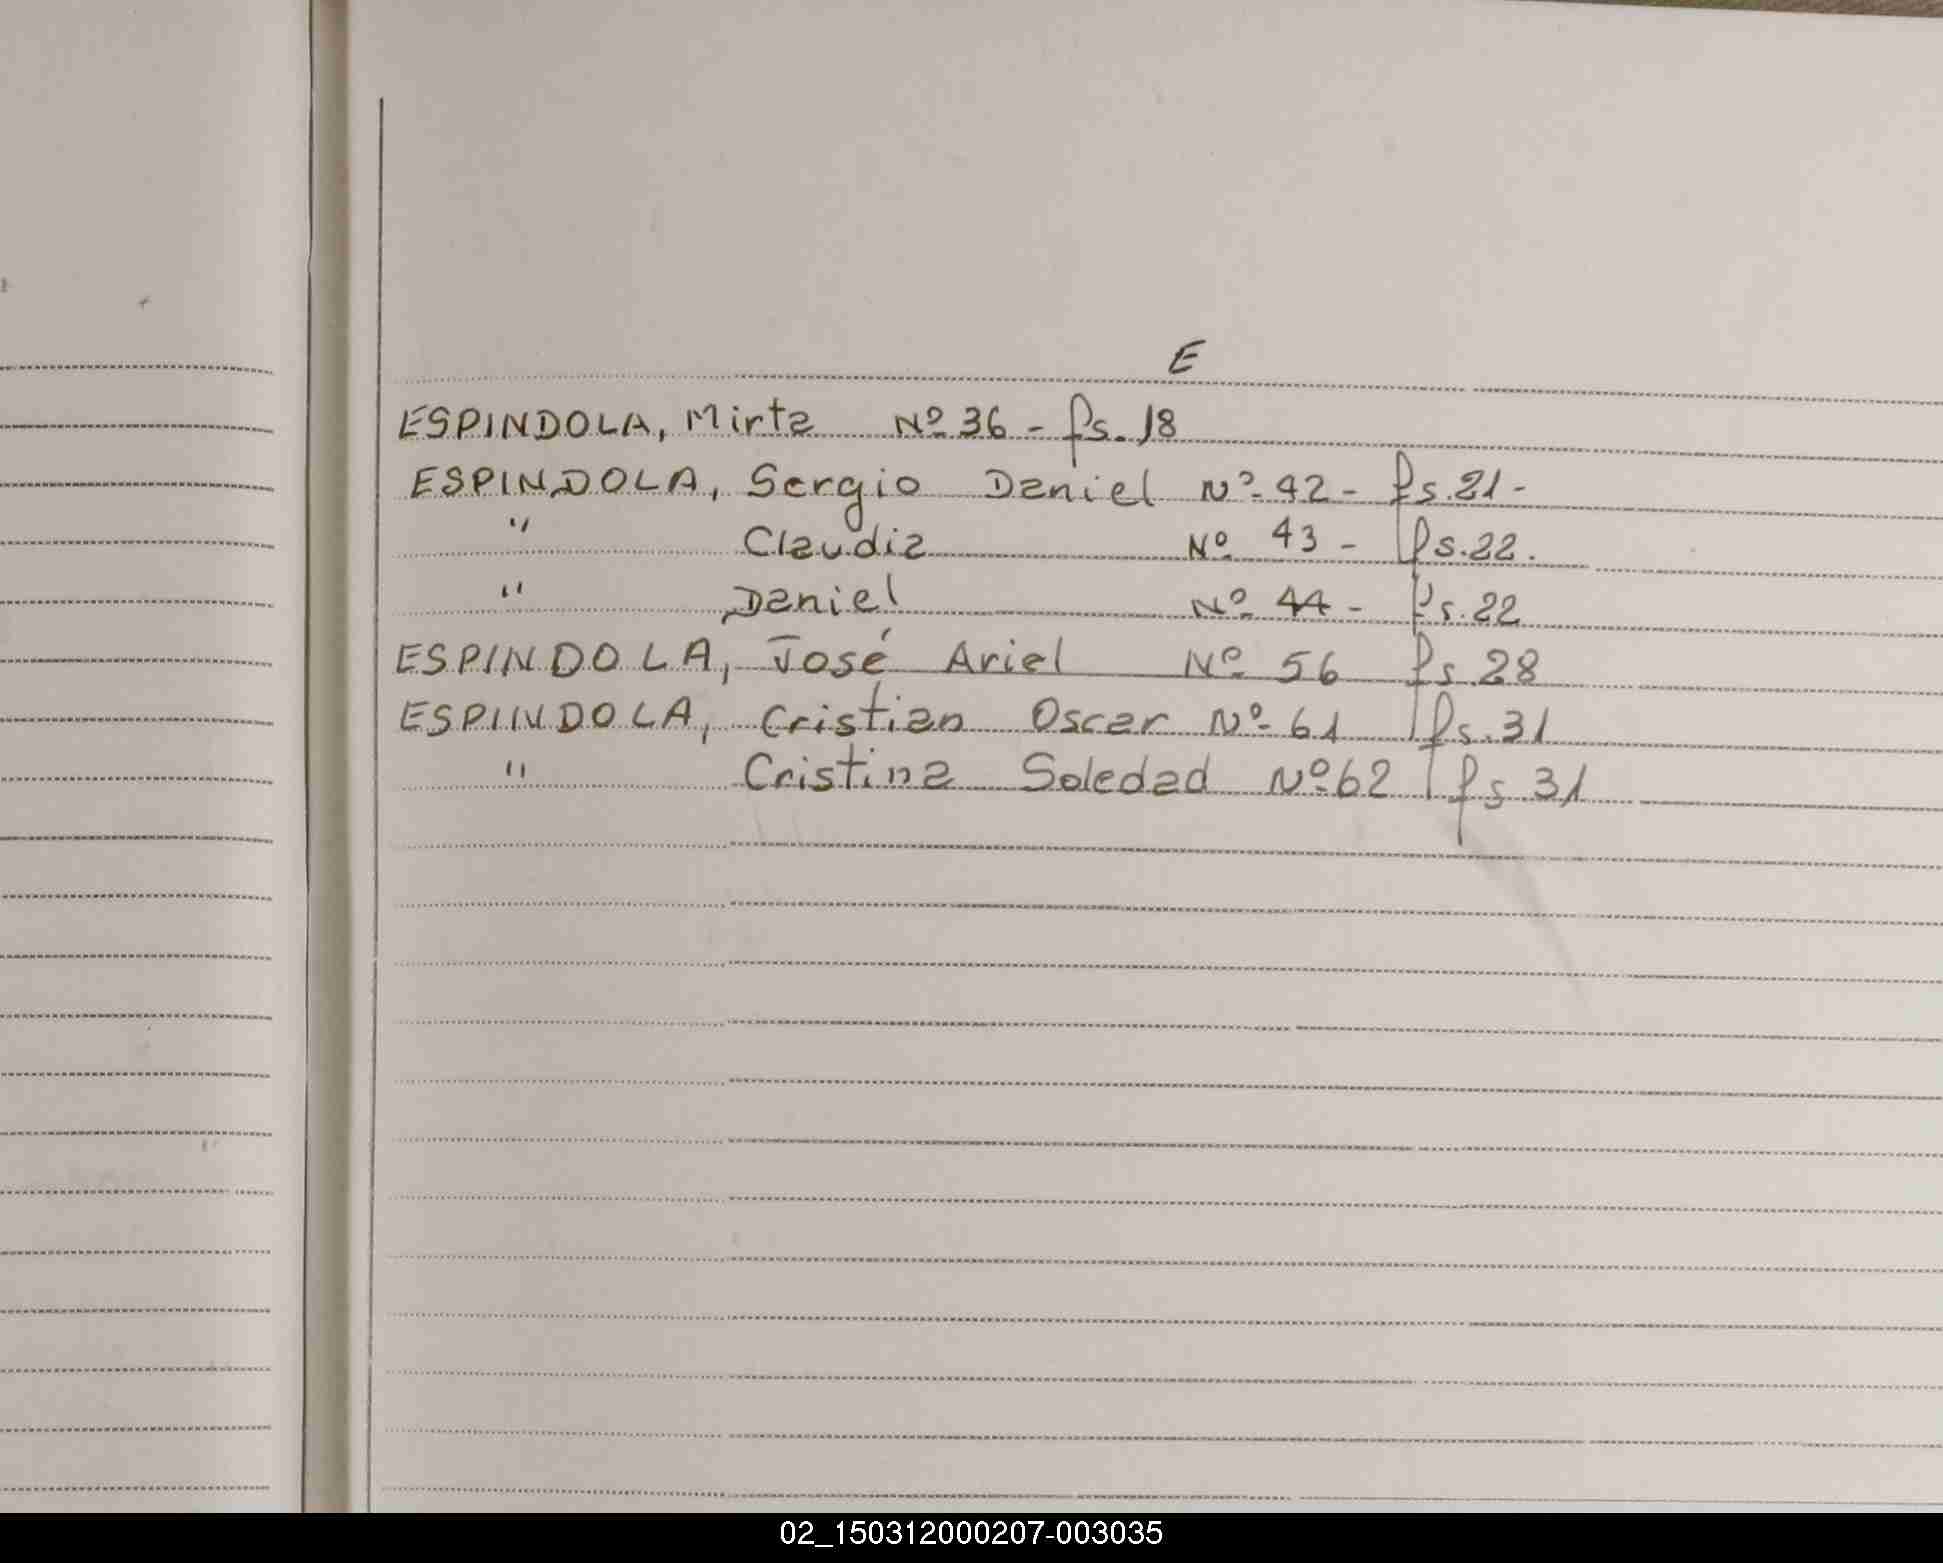 E
ESPINDOLA, Mirta Nº 36 - fs. 18
ESPINDOLA, Sergio Daniel Nº 42 - fs. 21 -
" Claudia Nº 43 - fs. 22.
" Daniel Nº 44 - fs. 22
ESPINDOLA, José Ariel Nº 56 fs. 28
ESPINDOLA, Cristian Oscar Nº 61 fs. 31
" Cristina Soledad Nº 62 fs 31
02_150312000207-003035